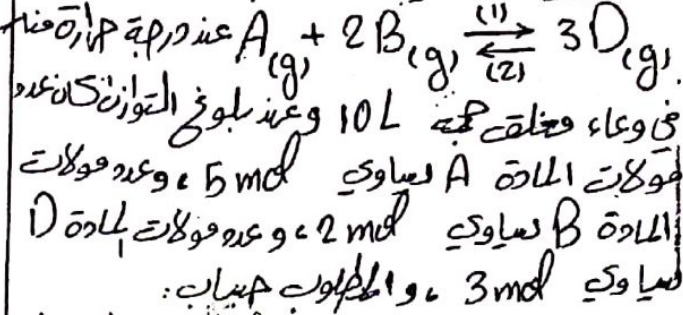 A(g) + 2B(g) ⇌ 3D(g) (1) (2) عند درجة حرارة
في وعاء مغلق حجمه 10 L وعند بلوغ التوازن كان عدد
مولات المادة A يساوي 5 mol، وعدد مولات
المادة B يساوي 2 mol، وعدد مولات المادة D
يساوي 3 mol، والمطلوب حساب: